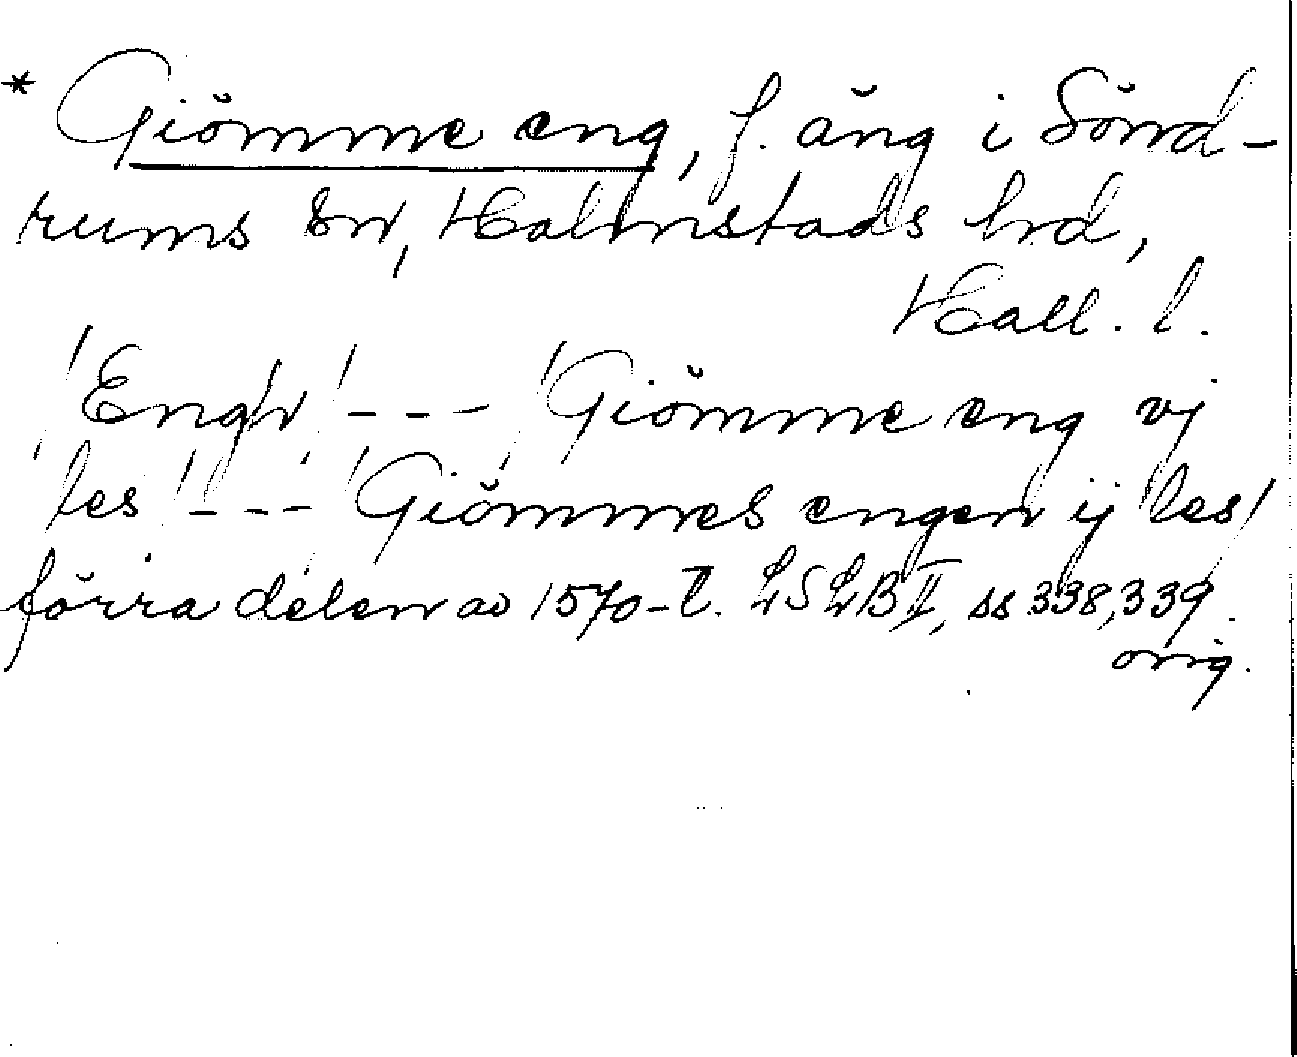 * Giömme eng, f. äng i Sönd-
rums sn, Halmstads hrd,
Hall. l.
/Engh/ --- /Giömme eng vj
les/ --- /Giömmes engen ij les/
förra delen av 1570-t. LSLB II, ss 338, 339.
orig.